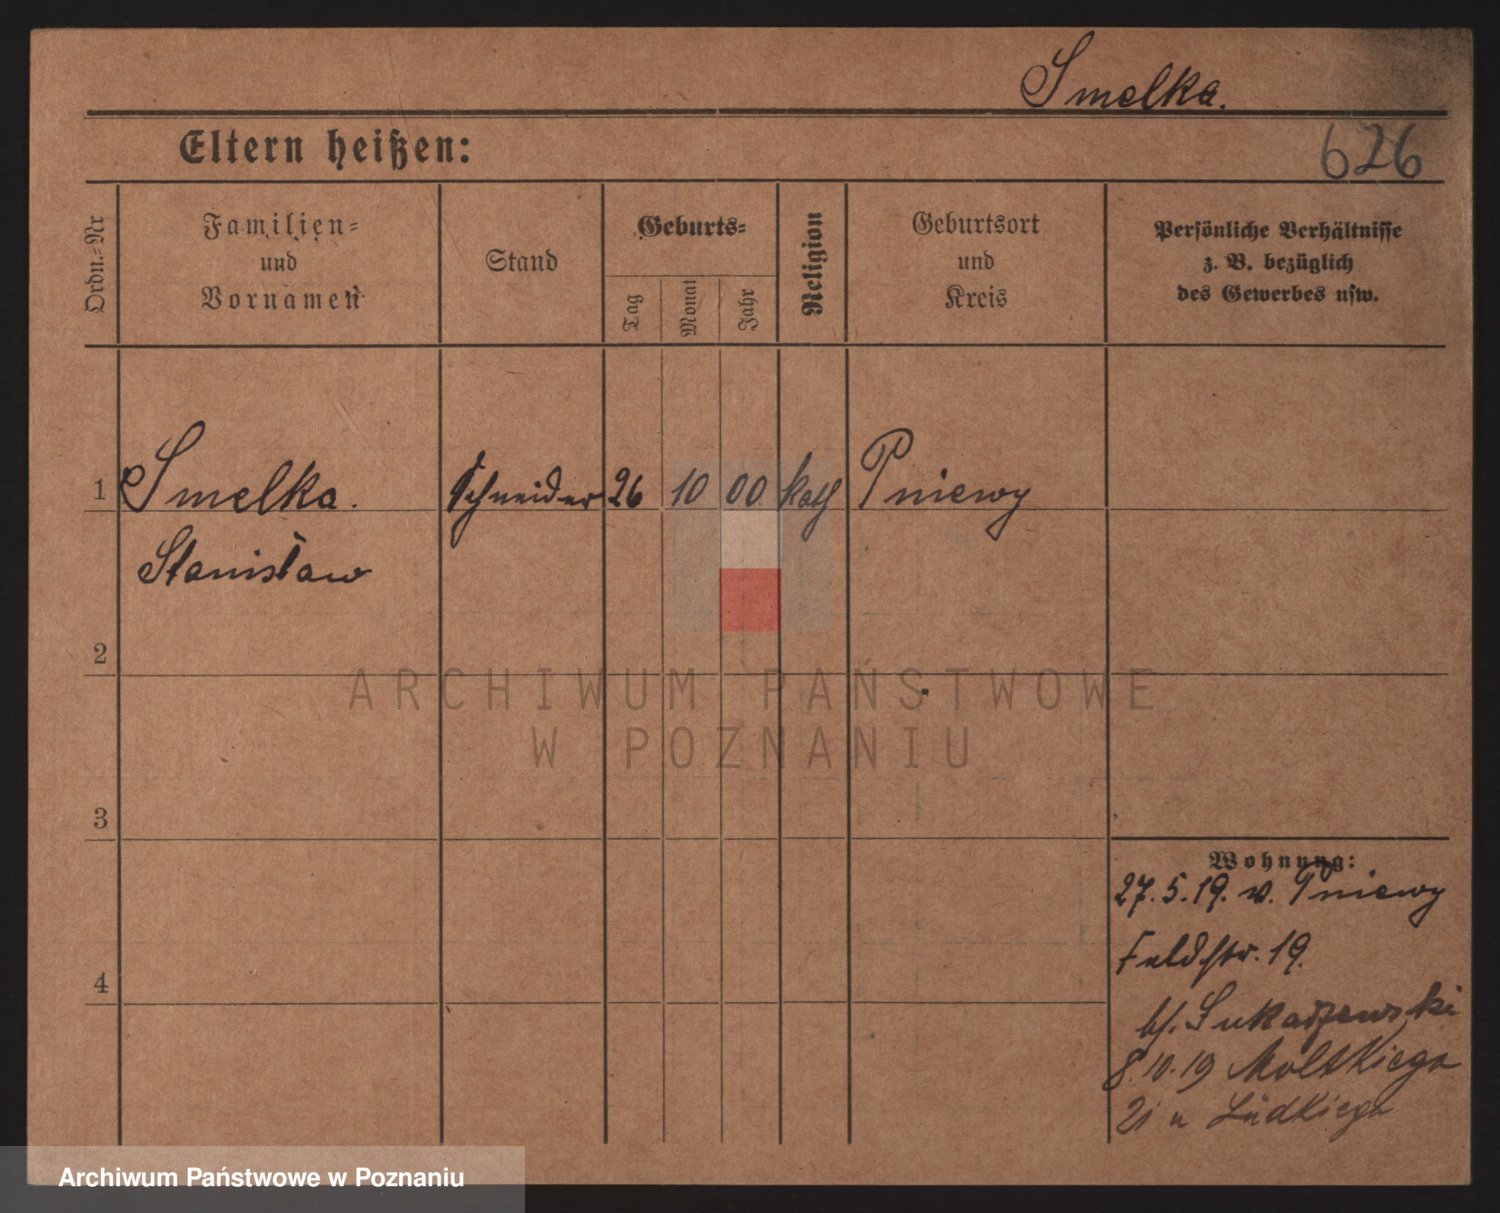 Smelka.
Eltern heißen:
626
Ordn.-Nr
Familien-
und
Vornamen
Stand
Geburts-
Tag
Monat
Jahr
Religion
Geburtsort
und
Kreis
Persönliche Verhältnisse
z. B. bezüglich
des Gewerbes usw.
1 Smelka. Schneider 26 10 00 kath Pniewy
Stanisław
2
ARCHIWUM PAŃSTWOWE
W POZNANIU
3
Wohnung:
27.5.19. v. Pniewy
Feldstr. 19.
4
bf. Lukaszewski
8.10.19 Moltkiego
21 u Lüdkiego
Archiwum Państwowe w Poznaniu